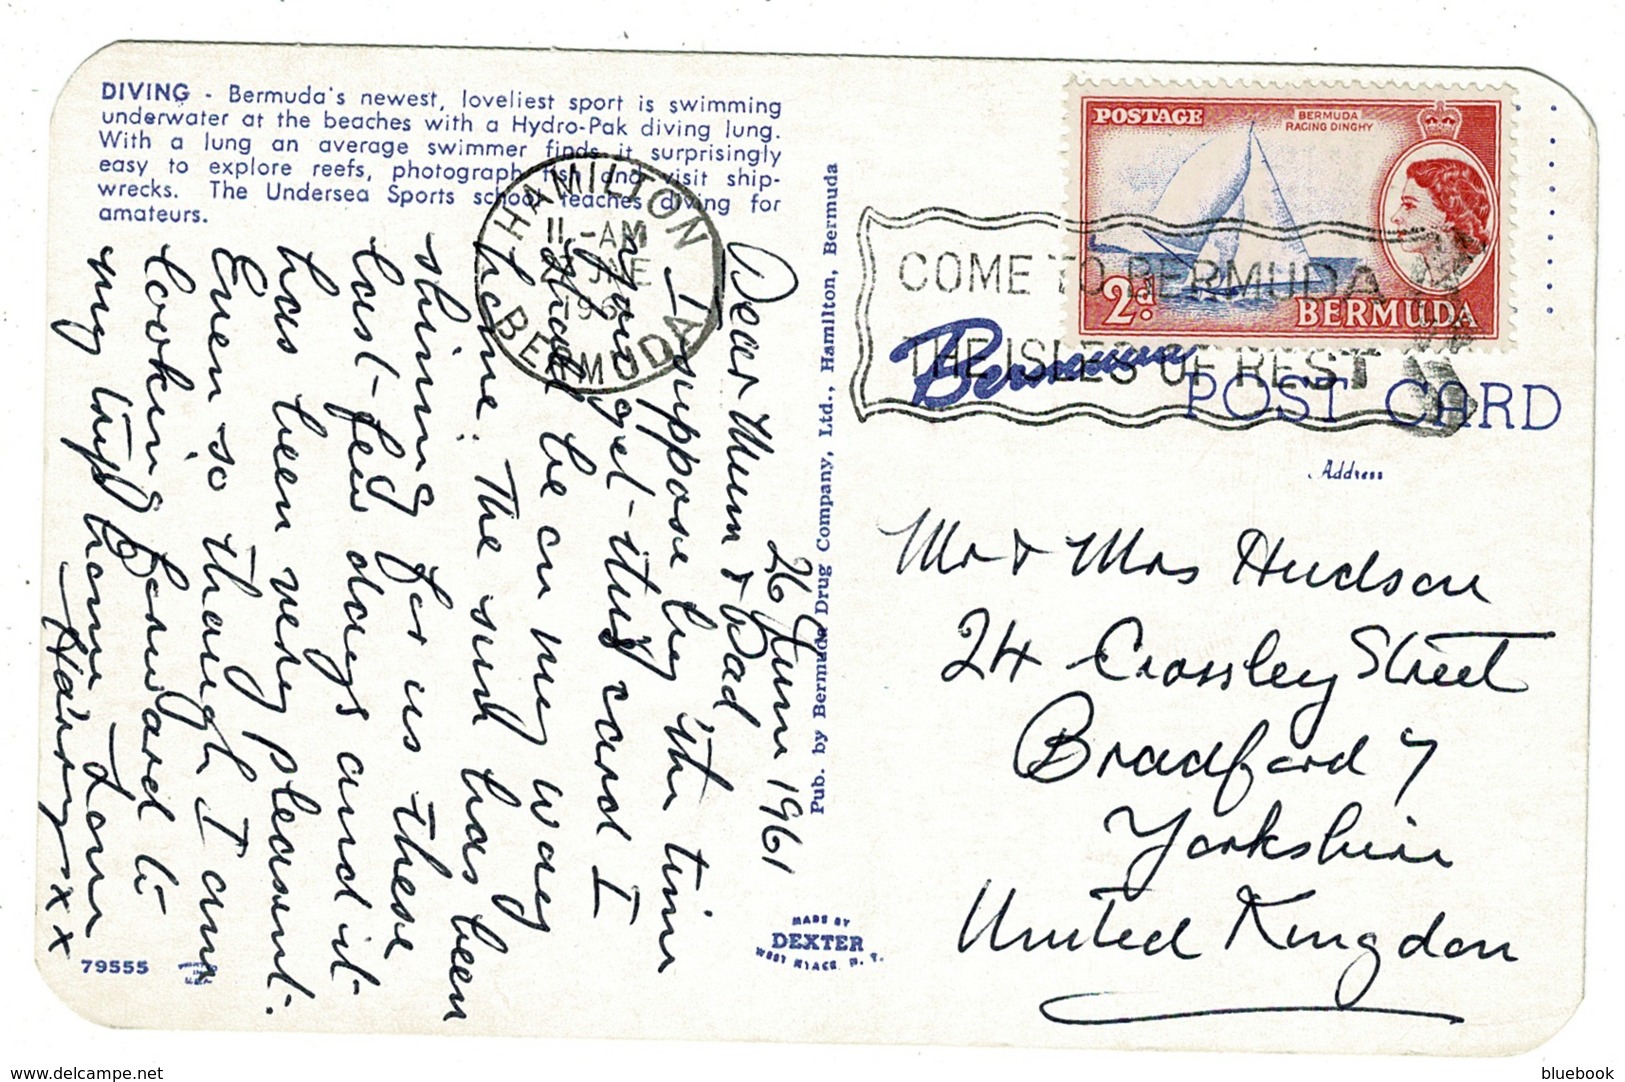 DIVING - Bermuda's newest, loveliest sport is swimming
underwater at the beaches with a Hydro-Pak diving lung.
With a lung an average swimmer finds it surprisingly
easy to explore reefs, photograph fish and visit ship-
wrecks. The Undersea Sports school teaches diving for
amateurs.
HAMILTON
11-AM
JNE
196
BERMUDA
26 June 1961
Dear Mum & Dad
I suppose by the time
you get this card I
shall be on my way
home. The sun has been
shining for us these
last few days and it
has been very pleasant.
Even so though I am
looking forward to
my trip home
Love
Harry xxx
79555
Pub. by Bermuda Drug Company, Ltd., Hamilton, Bermuda
MADE BY
DEXTER
WEST NYACK, N. Y.
POSTAGE
BERMUDA
RACING DINGHY
2d.
BERMUDA
COME TO BERMUDA
THE ISLES OF REST
Bermuda
POST CARD
Address
Mr & Mrs Hudson
24 Crossley Street
Bradford 7
Yorkshire
United Kingdom
bluebook
delcampe.net